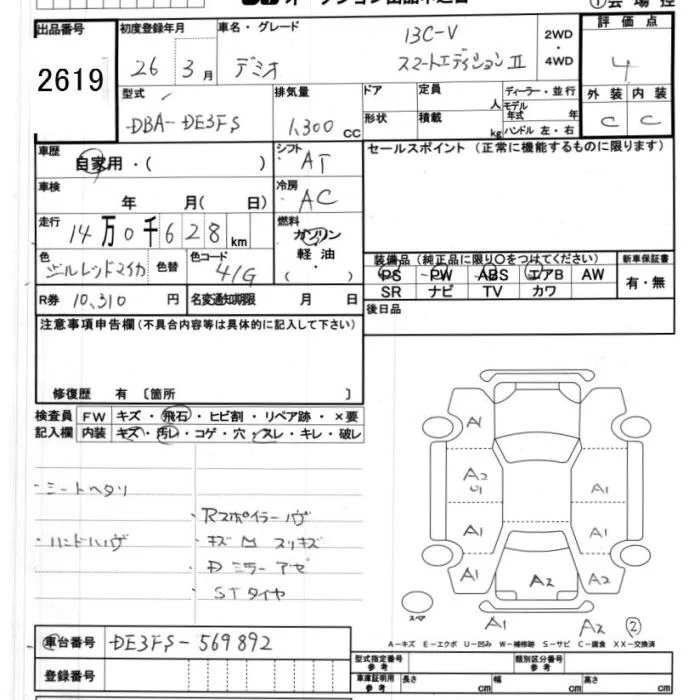 出品番号
2619
初度登録年月
26年 3月
車名・グレード
13C-V
デミオ スマートエディションⅡ
2WD
・
4WD
評価点
4
外装 内装
C C
型式
DBA-DE3FS
排気量
1,300 CC
ドア 定員 人
形状 積載 kg
ディーラー・並行
モデル年式 年
ハンドル 左・右
車歴
自家用・( )
シフト
AT
セールスポイント (正常に機能するものに限ります)
車検
年 月( 日)
冷房
AC
走行
14万0千628km
燃料
ガソリン
軽油
( ・ )
色 色替
色コード
41G
装備品 (純正品に限り○をつけてください)
新車保証書
PS PW ABS エアB AW
SR ナビ TV カワ
有・無
R券 10,310 円
名変通知期限 月 日
後日品
注意事項申告欄 (不具合内容等は具体的に記入して下さい)
修復歴 有 〔箇所 〕
検査員 FW キズ・飛石・ヒビ割・リペア跡・×要
記入欄 内装 キズ・汚レ・コゲ・穴・スレ・キレ・破レ
・シートヘタリ
・Rスポイラーハゲ
・ハンドハゲ
・キズ凹スリキズ
・Dミラーアセ
・STタイヤ
A1
A2
U1
A1
A1
A1
A1
A2
A2
スペア
A1
A2 ②
A-キズ E-エクボ U-凹み W-補修跡 S-サビ C-腐食 XX-交換済
車台番号
DE3FS-569892
登録番号
型式指定番号 参考
類別区分番号 参考
車庫証明用 参考
長さ cm 幅 cm 高さ cm